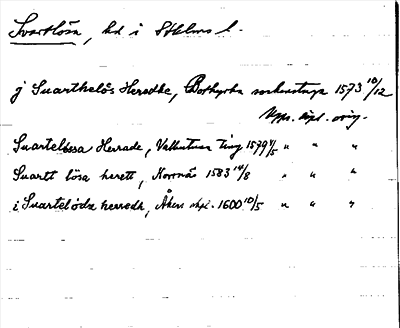 Svartlösa, hd i Sthlms l.
j Suarthelös Heredhe, Bothyrka sockenstuga 1573 10/12
Upps. dipl. orig.
Suartelössa Herrade, Valtuna Ting 1579 4/5 " " "
Suartt lösa herett, Norrnäs 1583 14/8 " " "
i Suartelödze herredh, 1600 10/5 " " "